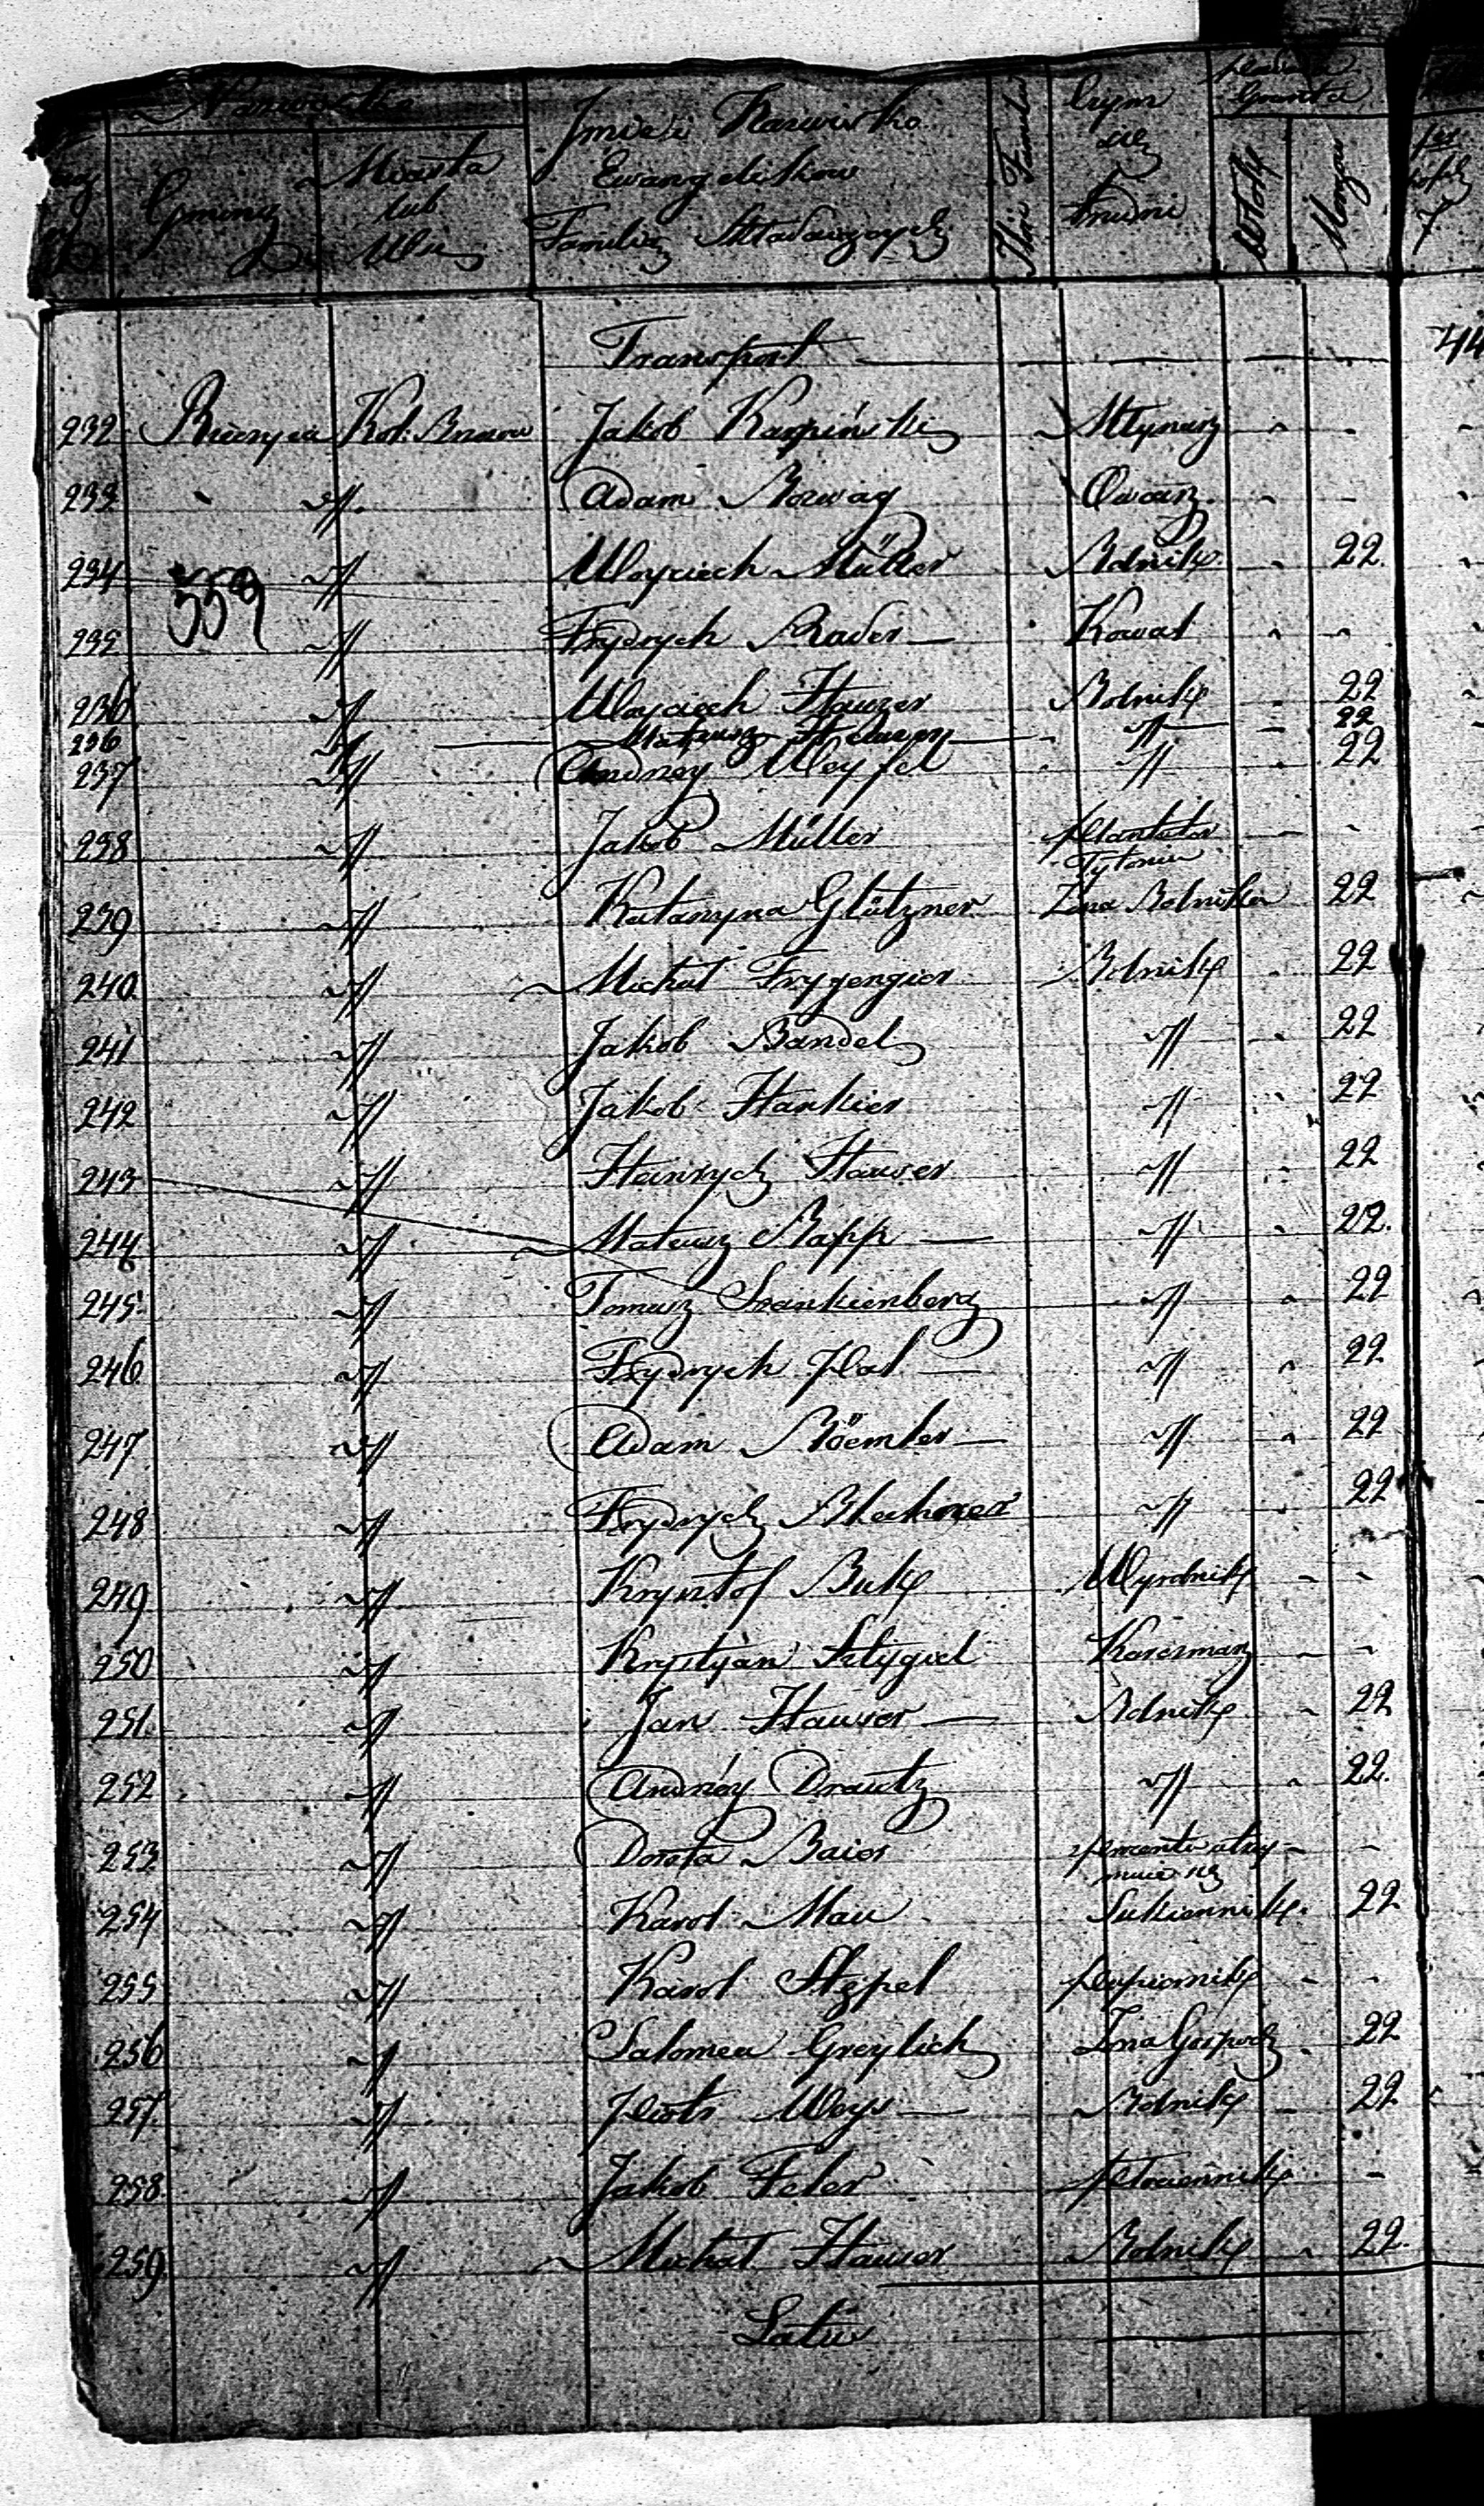 Nazwisko
Gminy
Miasta
lub
Wsie
Imie i Nazwisko
Ewangelikow
Familią Składaiących
czym
się
trudni
posiada
Gruntu
Włoki
Morgow
7
Transport — 44
232 Bierzyca Kol: Brzow Jakob Karpiński Młynarz - -
233 " " Adam Norwag Owcarz. - -
234 " Woyciech Müller Rolnik - 22.
559
235 " Frydrych Rader — Kowal - -
236 " Woyciech Hauzer Rolnik - 22
236 " Mateusz " - 22
237 " Andrzey Weyfel " - 22
238 " Jakob Müller plantator - -
Tytoniu
239 " Katarzyna Glützner Żona Rolnika 22
240 " Michał Frygengier Rolnik - 22
241 " Jakob Bandel " - 22
242 " Jakob Hankier " - 22
243 " Heinrych Hauser " - 22
244 " Mateusz Rapp — " - 22.
245. " Tomasz Frankienberg " - 22
246 " Frydrych Pol — " - 22
247 " Adam Röemler — " - 22
248 " Frydrych " - 22
249 " Krysztof Buk Wyrobnik - -
250 " Krystÿan Sztygiel Karczmarz - -
251. " Jan Hauser — Rolnik - 22
252 " Andrzey Drautz " - 22.
253 " Dorota Baier procentu utrzy- -
muie się
254 " Karol Mau Sukiennik. 22
255 " Karol Stępel papiernik - -
256 " Salomea Greylich Żona Gospod 22
257 " Piotr Weys — Rolnik - 22
258. " Jakob Feler płóciennik -
259. " Michał Hauser Rolnik - 22.
Latus